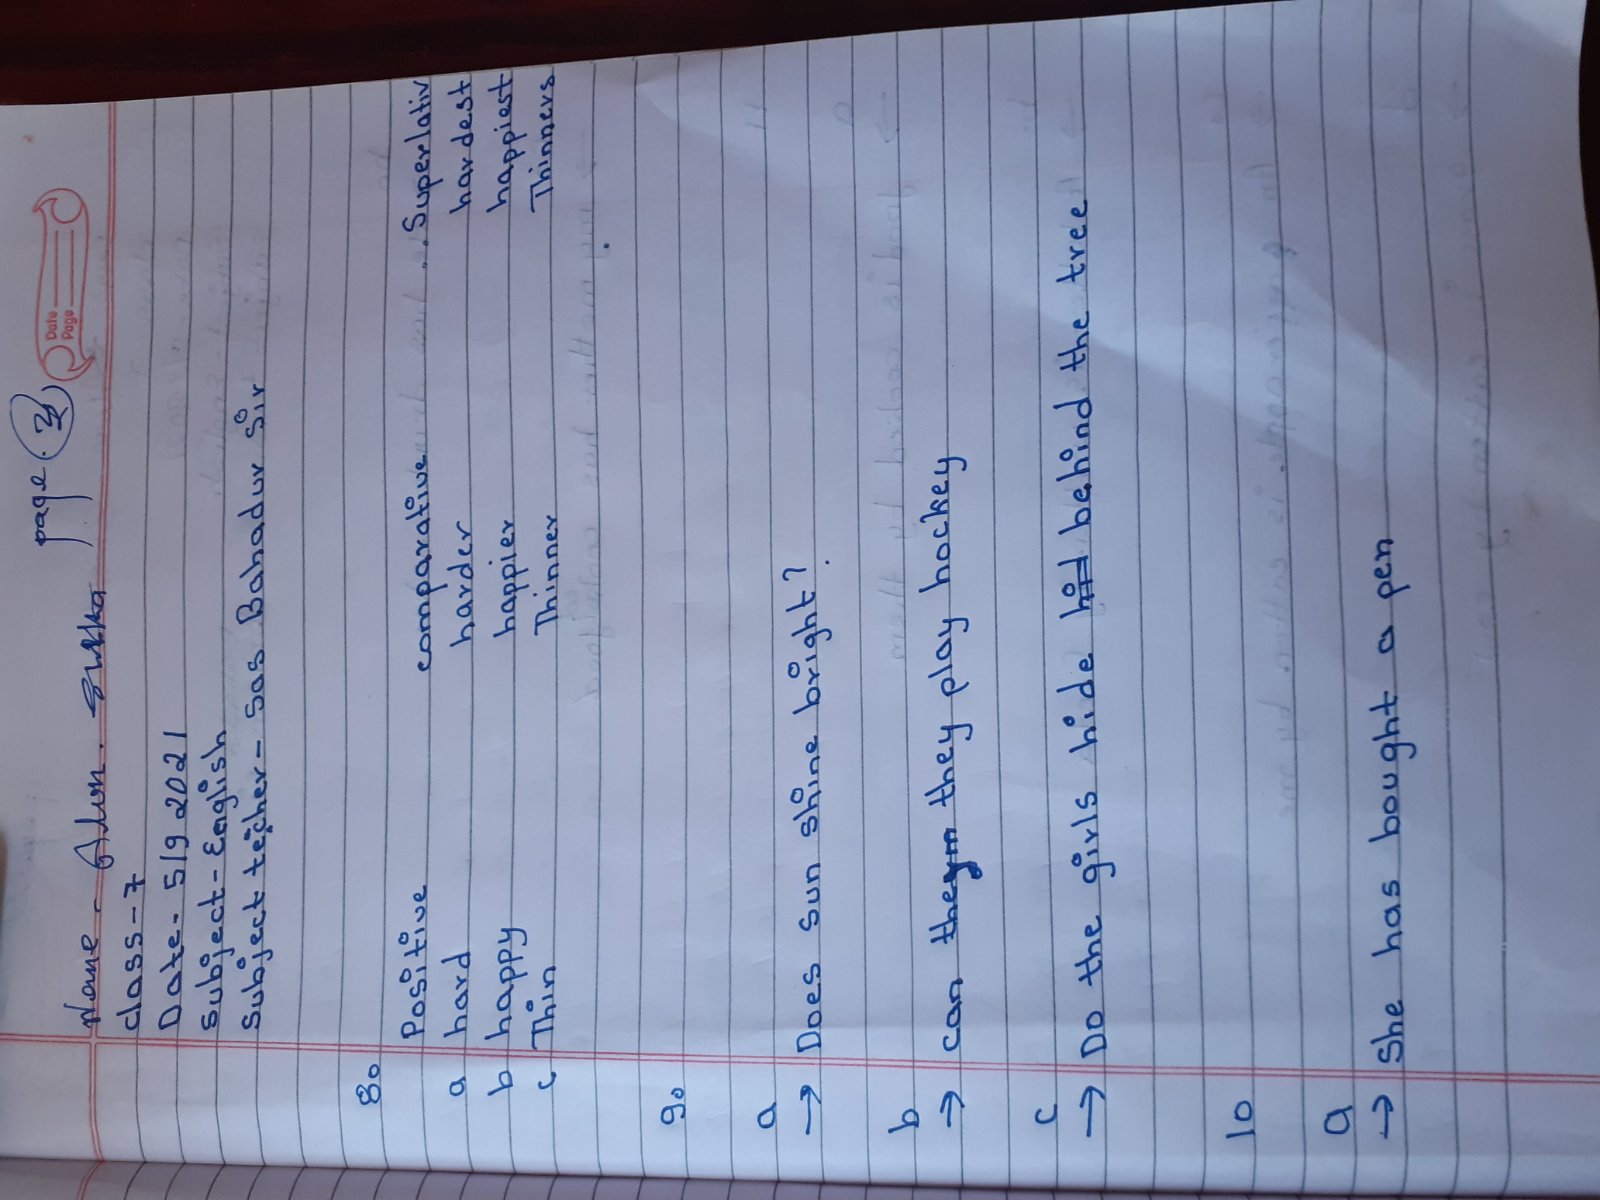 page. 3
Date
Page
Name -
class - 7
Date - 5/9 2021
subject - English
subject techer - Sas Bahadur Sir
8.
Positive comparative Superlativ
a hard harder hardest
b happy happier happiest
c Thin Thinner Thinners
9.
a
→ Does sun shine bright?
b
→ can they play hockey
c
→ Do the girls hide hid behind the tree
10
a
→ She has bought a pen